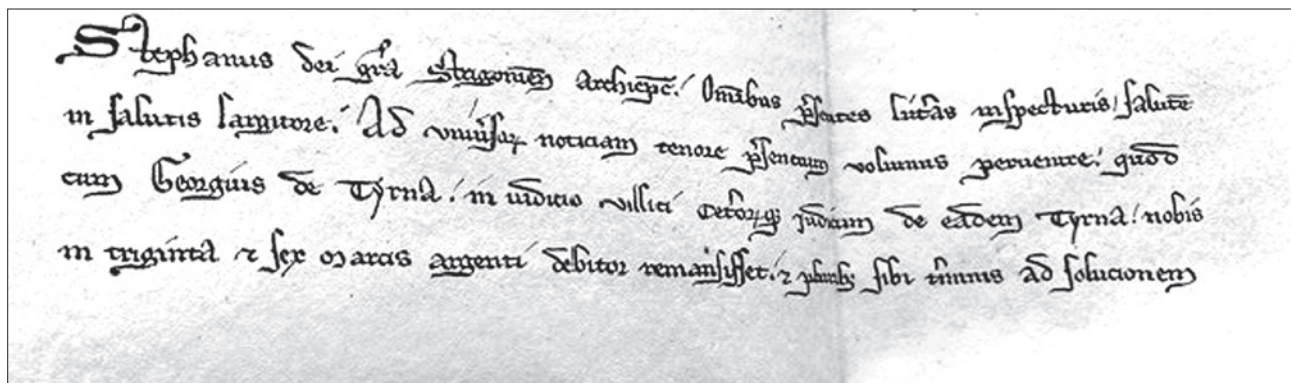 Stephanus dei gra̅ Strigonien̅ Archiep̅c. Om̅ibus p̅sentes litt̅as inspecturis salute̅
in salutis largitore. Ad univ̅sor̅ noticiam tenore p̅sencium volumus pervenire. quod
cum Georgius de Tyrna. in iudicio villici cet̅or̅q; iudicum de eadem Tyrna. nobis
in triginta ⁊ sex Marcis argenti debitor remansisset. ⁊ plurib; sibi t̅minis ad solucionem